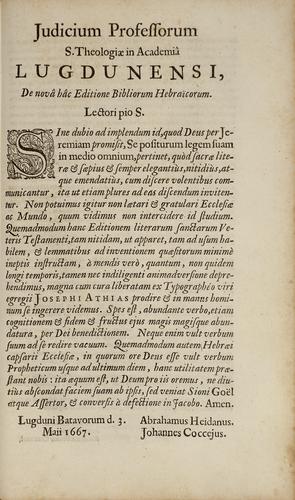 Judicium Professorum
S. Theologiæ in Academiâ
LUGDUNENSI,
De novâ hâc Editione Bibliorum Hebraïcorum.
Lectori pio S.
Sine dubio ad implendum id, quod Deus per Je-
remiam promisit, Se positurum legem suam
in medio omnium, pertinet, quòd sacræ lite-
ræ & sæpius & semper elegantius, nitidiùs, at-
que emendatiùs, cum discere volentibus com-
municantur, ita ut etiam plures ad eas discendum inviten-
tur. Non potuimus igitur non lætari & gratulari Ecclesiæ
ac Mundo, quum vidimus non intercidere id studium.
Quemadmodum hanc Editionem literarum sanctarum Ve-
teris Testamenti, tam nitidam, ut apparet, tam ad usum ha-
bilem, & lemmatibus ad inventionem quæsitorum minimè
ineptis instructam, à mendis verò, quantum, non quidem
longi temporis, tamen nec indiligenti animadversione depre-
hendimus, magna cum cura liberatam ex Typographéo viri
egregii JOSEPHI ATHIAS prodire & in manus homi-
num se ingerere videmus. Spes est, abundante verbo, etiam
cognitionem & fidem & fructus ejus magis magisque abun-
datura, per Dei benedictionem. Neque enim vult verbum
suum ad se redire vacuum. Quemadmodum autem Hebræi
capsarii Ecclesiæ, in quorum ore Deus esse vult verbum
Propheticum usque ad ultimum diem, hanc utilitatem præ-
stant nobis: ita æquum est, ut Deum pro iis oremus, ne diu-
tiùs abscondat faciem suam ab ipsis, sed veniat Sioni Goël
atque Assertor, & conversis à defectione in Jacobo. Amen.
Lugduni Batavorum d. 3. Abrahamus Heidanus.
Maii 1667. Johannes Coccejus.